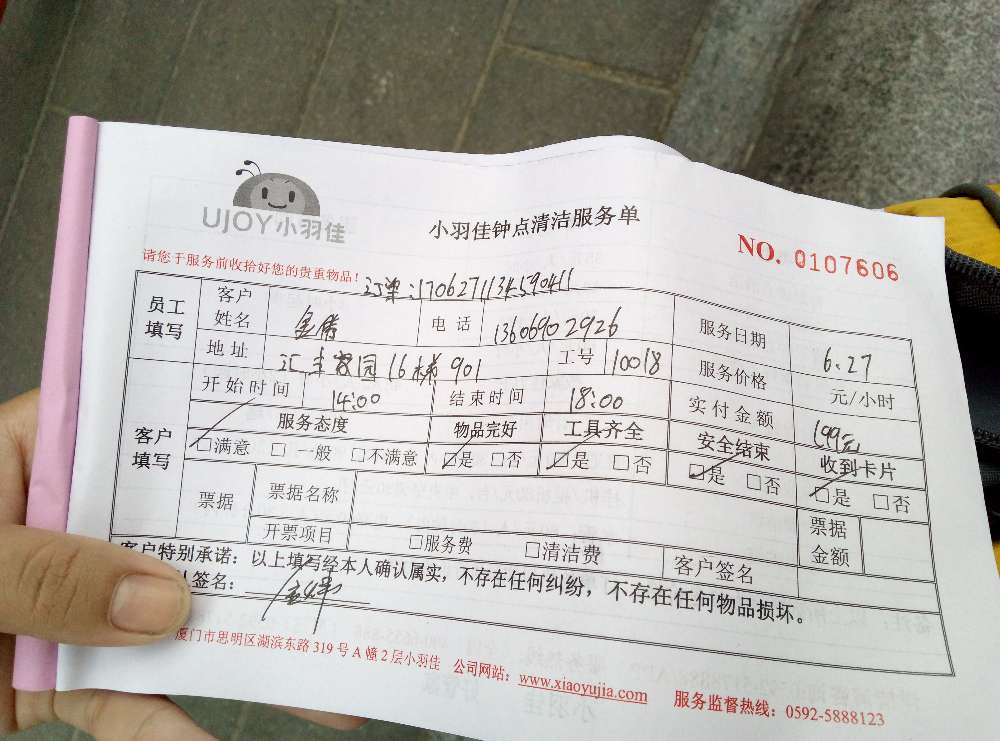 UJOY小羽佳
小羽佳钟点清洁服务单
NO. 0107606
请您于服务前收拾好您的贵重物品！
订单:1706271134590411
员工填写 客户姓名 金腾 电话 13606902926 服务日期 6.27
地址 汇丰家园16栋901 工号 10018 服务价格 元/小时
开始时间 14:00 结束时间 18:00 实付金额 199元
客户填写 服务态度 物品完好 工具齐全 安全结束 收到卡片
□满意 □一般 □不满意 □是 □否 □是 □否 □是 □否 □是 □否
票据 票据名称 票据金额
开票项目 □服务费 □清洁费 客户签名
客户特别承诺：以上填写经本人确认属实，不存在任何纠纷，不存在任何物品损坏。
人签名：
厦门市思明区湖滨东路319号A幢2层小羽佳 公司网站：www.xiaoyujia.com 服务监督热线：0592-5888123